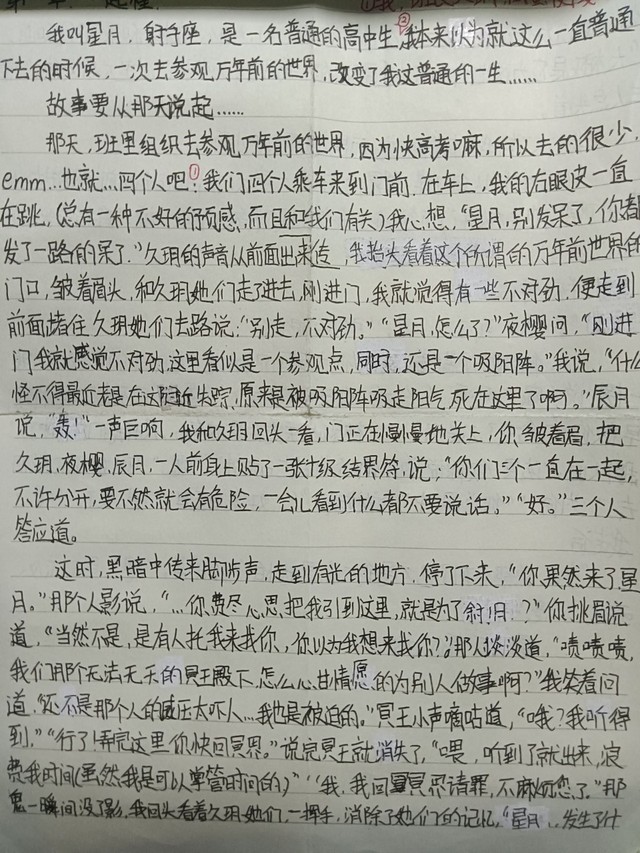 我叫星月，射手座，是一名普通的高中生，②我本来以为就这么一直普通
下去的时候，一次去参观万年前的世界，改变了我这普通的一生……
故事要从那天说起……
那天，班里组织去参观万年前的世界，因为快高考嘛，所以去的很少，
emm…也就…四个人吧①！我们四个人乘车来到门前，在车上，我的右眼皮一直
在跳，(总有一种不好的预感，而且和我们有关)我心想，“星月，别发呆了，你都
发了一路的呆了。”久玥的声音从前面出来传，我抬头看着这个所谓的万年前世界的
门口，皱着眉头，和久玥她们走了进去，刚进门，我就觉得有一些不对劲，便走到
前面堵住久玥她们去路说：“别走，不对劲。”“星月，怎么了？”夜樱问，“刚进
门我就感觉不对劲，这里看似是一个参观点，同时，还是一个吸阳阵。”我说，“什么
怪不得最近老是在这附近失踪，原来是被吸阳阵吸走阳气，死在这里了啊。”辰月
说，“轰！”一声巨响，我和久玥回头一看，门正在慢慢地关上，你皱着眉，把
久玥，夜樱，辰月，一人前身上贴了一张十级结界符，说：“你们三个一直在一起，
不许分开，要不然就会有危险，一会儿看到什么都不要说话。”“好。”三个人
答应道。
这时，黑暗中传来脚步声，走到有光的地方，停了下来，“你果然来了星
月。”那个人影说，“…你费尽心思把我引到这里，就是为了叙旧？”你挑眉说
道，“当然不是，是有人托我来找你，你以为我想来找你？”那人淡淡道，“啧啧啧，
我们那个无法无天的冥王殿下，怎么心甘情愿的为别人做事啊？”我笑着问
道，“还不是那个人的威压太吓人…我也是被迫的。”冥王小声嘀咕道，“哦？我听得
到。”“行了！弄完这里你快回冥界。”说完冥王就消失了，“喂，听到了就出来，浪
费我时间(虽然我是可以掌管时间的)”“我，我回冥界忍请罪，不麻烦您了。”那
鬼一瞬间没了影，我回头看着久玥她们，一挥手，消除了她们的记忆，“星月…发生了什